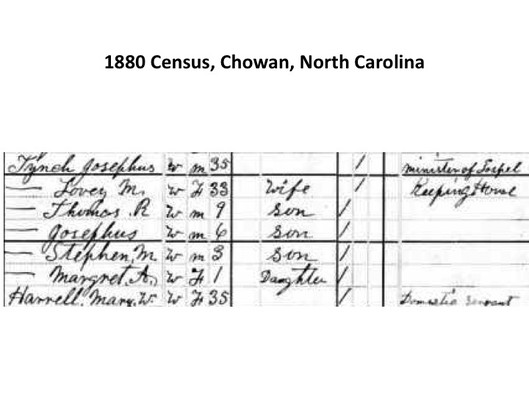 1880 Census, Chowan, North Carolina
Tynch Josephus W m 35 / minister of Gospel
— Lovey M. W F 33 Wife / Keeping House
— Thomas. R W m 9 Son /
— Josephus W m 6 Son /
— Stephen, M. W m 3 Son /
— Margret, A. W F 1 Daughter /
Harrell, Mary, W. W F 35 / Domestic Servant